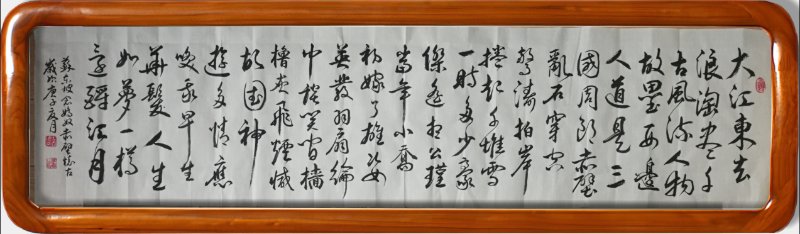 大江東去
浪淘盡千
古風流人物
故壘西邊
人道是三
國周郎赤壁
亂石穿空
驚濤拍岸
捲起千堆雪
一時多少豪
傑遙想公瑾
當年小喬
初嫁了雄姿
英發羽扇綸
巾談笑間檣
櫓灰飛煙滅
故國神
遊多情應
笑我早生
華髮人生
如夢一樽
還酹江月
蘇东坡念奴嬌赤壁懷古
歲次庚子夏月